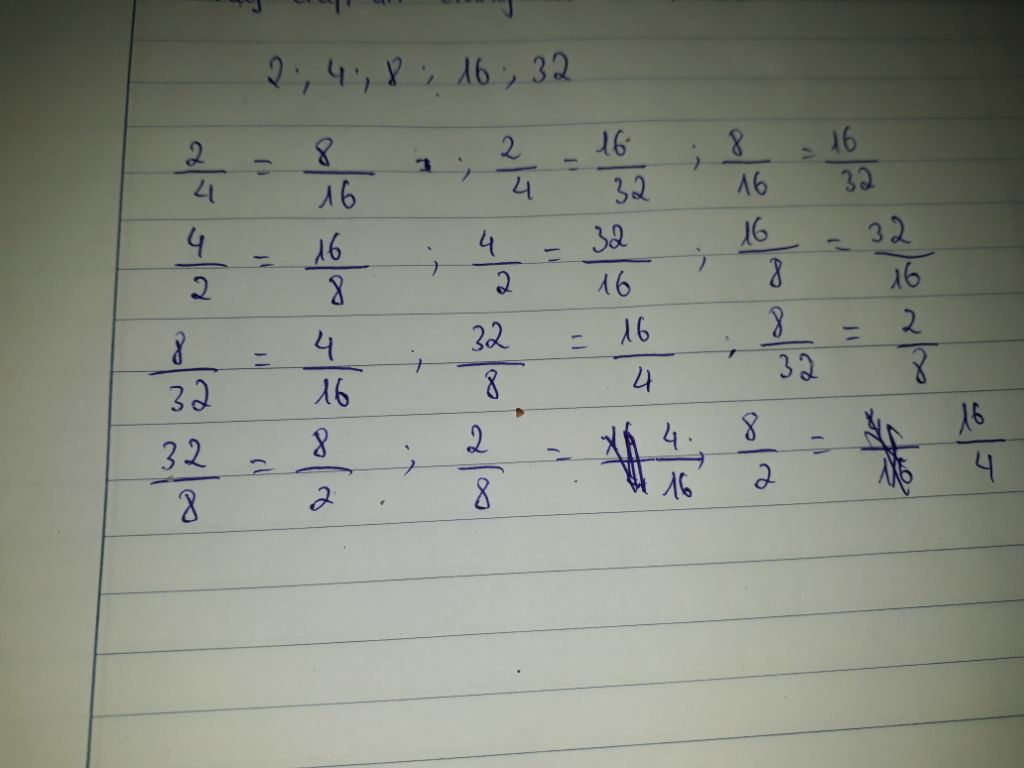 2 ; 4 ; 8 ; 16 ; 32
2/4 = 8/16 ; 2/4 = 16/32 ; 8/16 = 16/32
4/2 = 16/8 ; 4/2 = 32/16 ; 16/8 = 32/16
8/32 = 4/16 ; 32/8 = 16/4 ; 8/32 = 2/8
32/8 = 8/2 ; 2/8 = 4/16 , 8/2 = 16/4